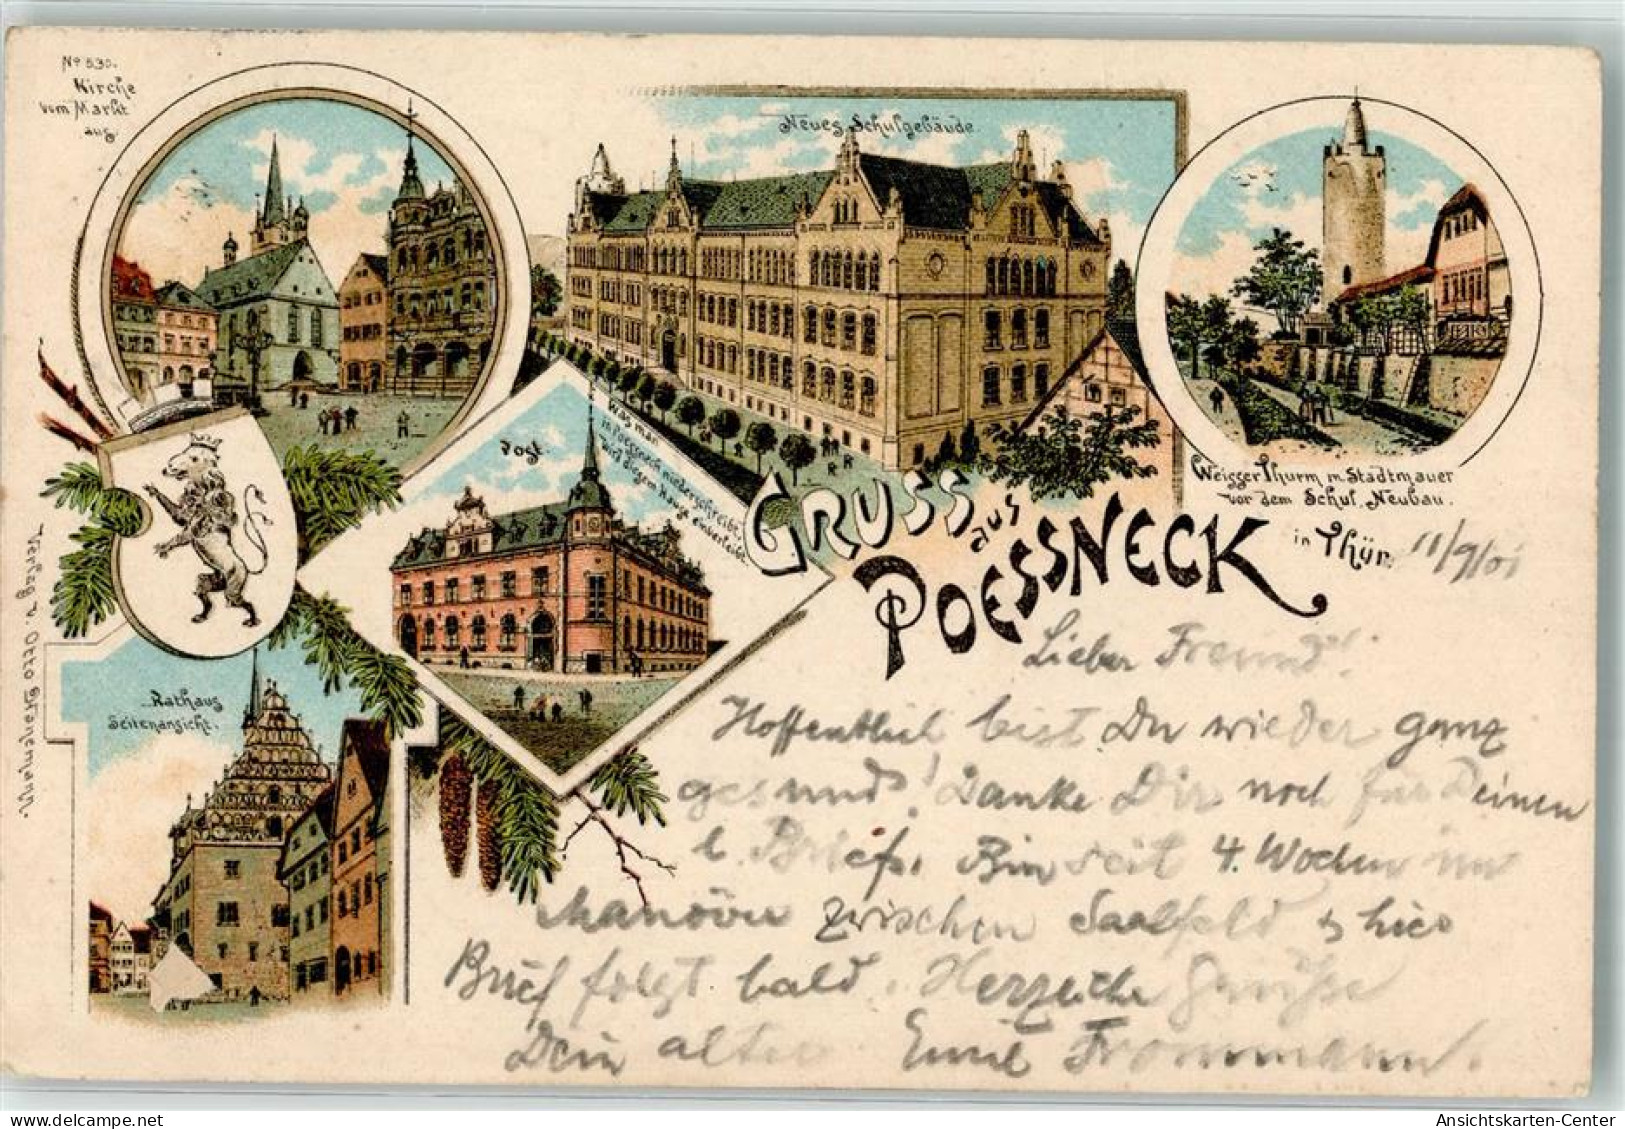 Nº 530.
Kirche
vom Markt
aus.
Neues Schulgebäude
Post
Was man
in Poessneck niederschreibt,
wird diesem Hause einverleibt.
Weisser Thurm m. Stadtmauer
vor dem Schul-Neubau.
GRUSS
aus
POESSNECK
in Thür.
11/9/01
Rathaus
Seitenansicht.
Verlag v. Otto
Lieber Freund!
Hoffentlich bist Du wieder ganz
gesund! Danke Dir noch für Deinen
l. Brief. Bin seit 4. Wochen im
Manöver zwischen Saalfeld & hier
Brief folgt bald. Herzliche Grüße
Dein alter Emil Frommann.
Ansichtskarten-Center